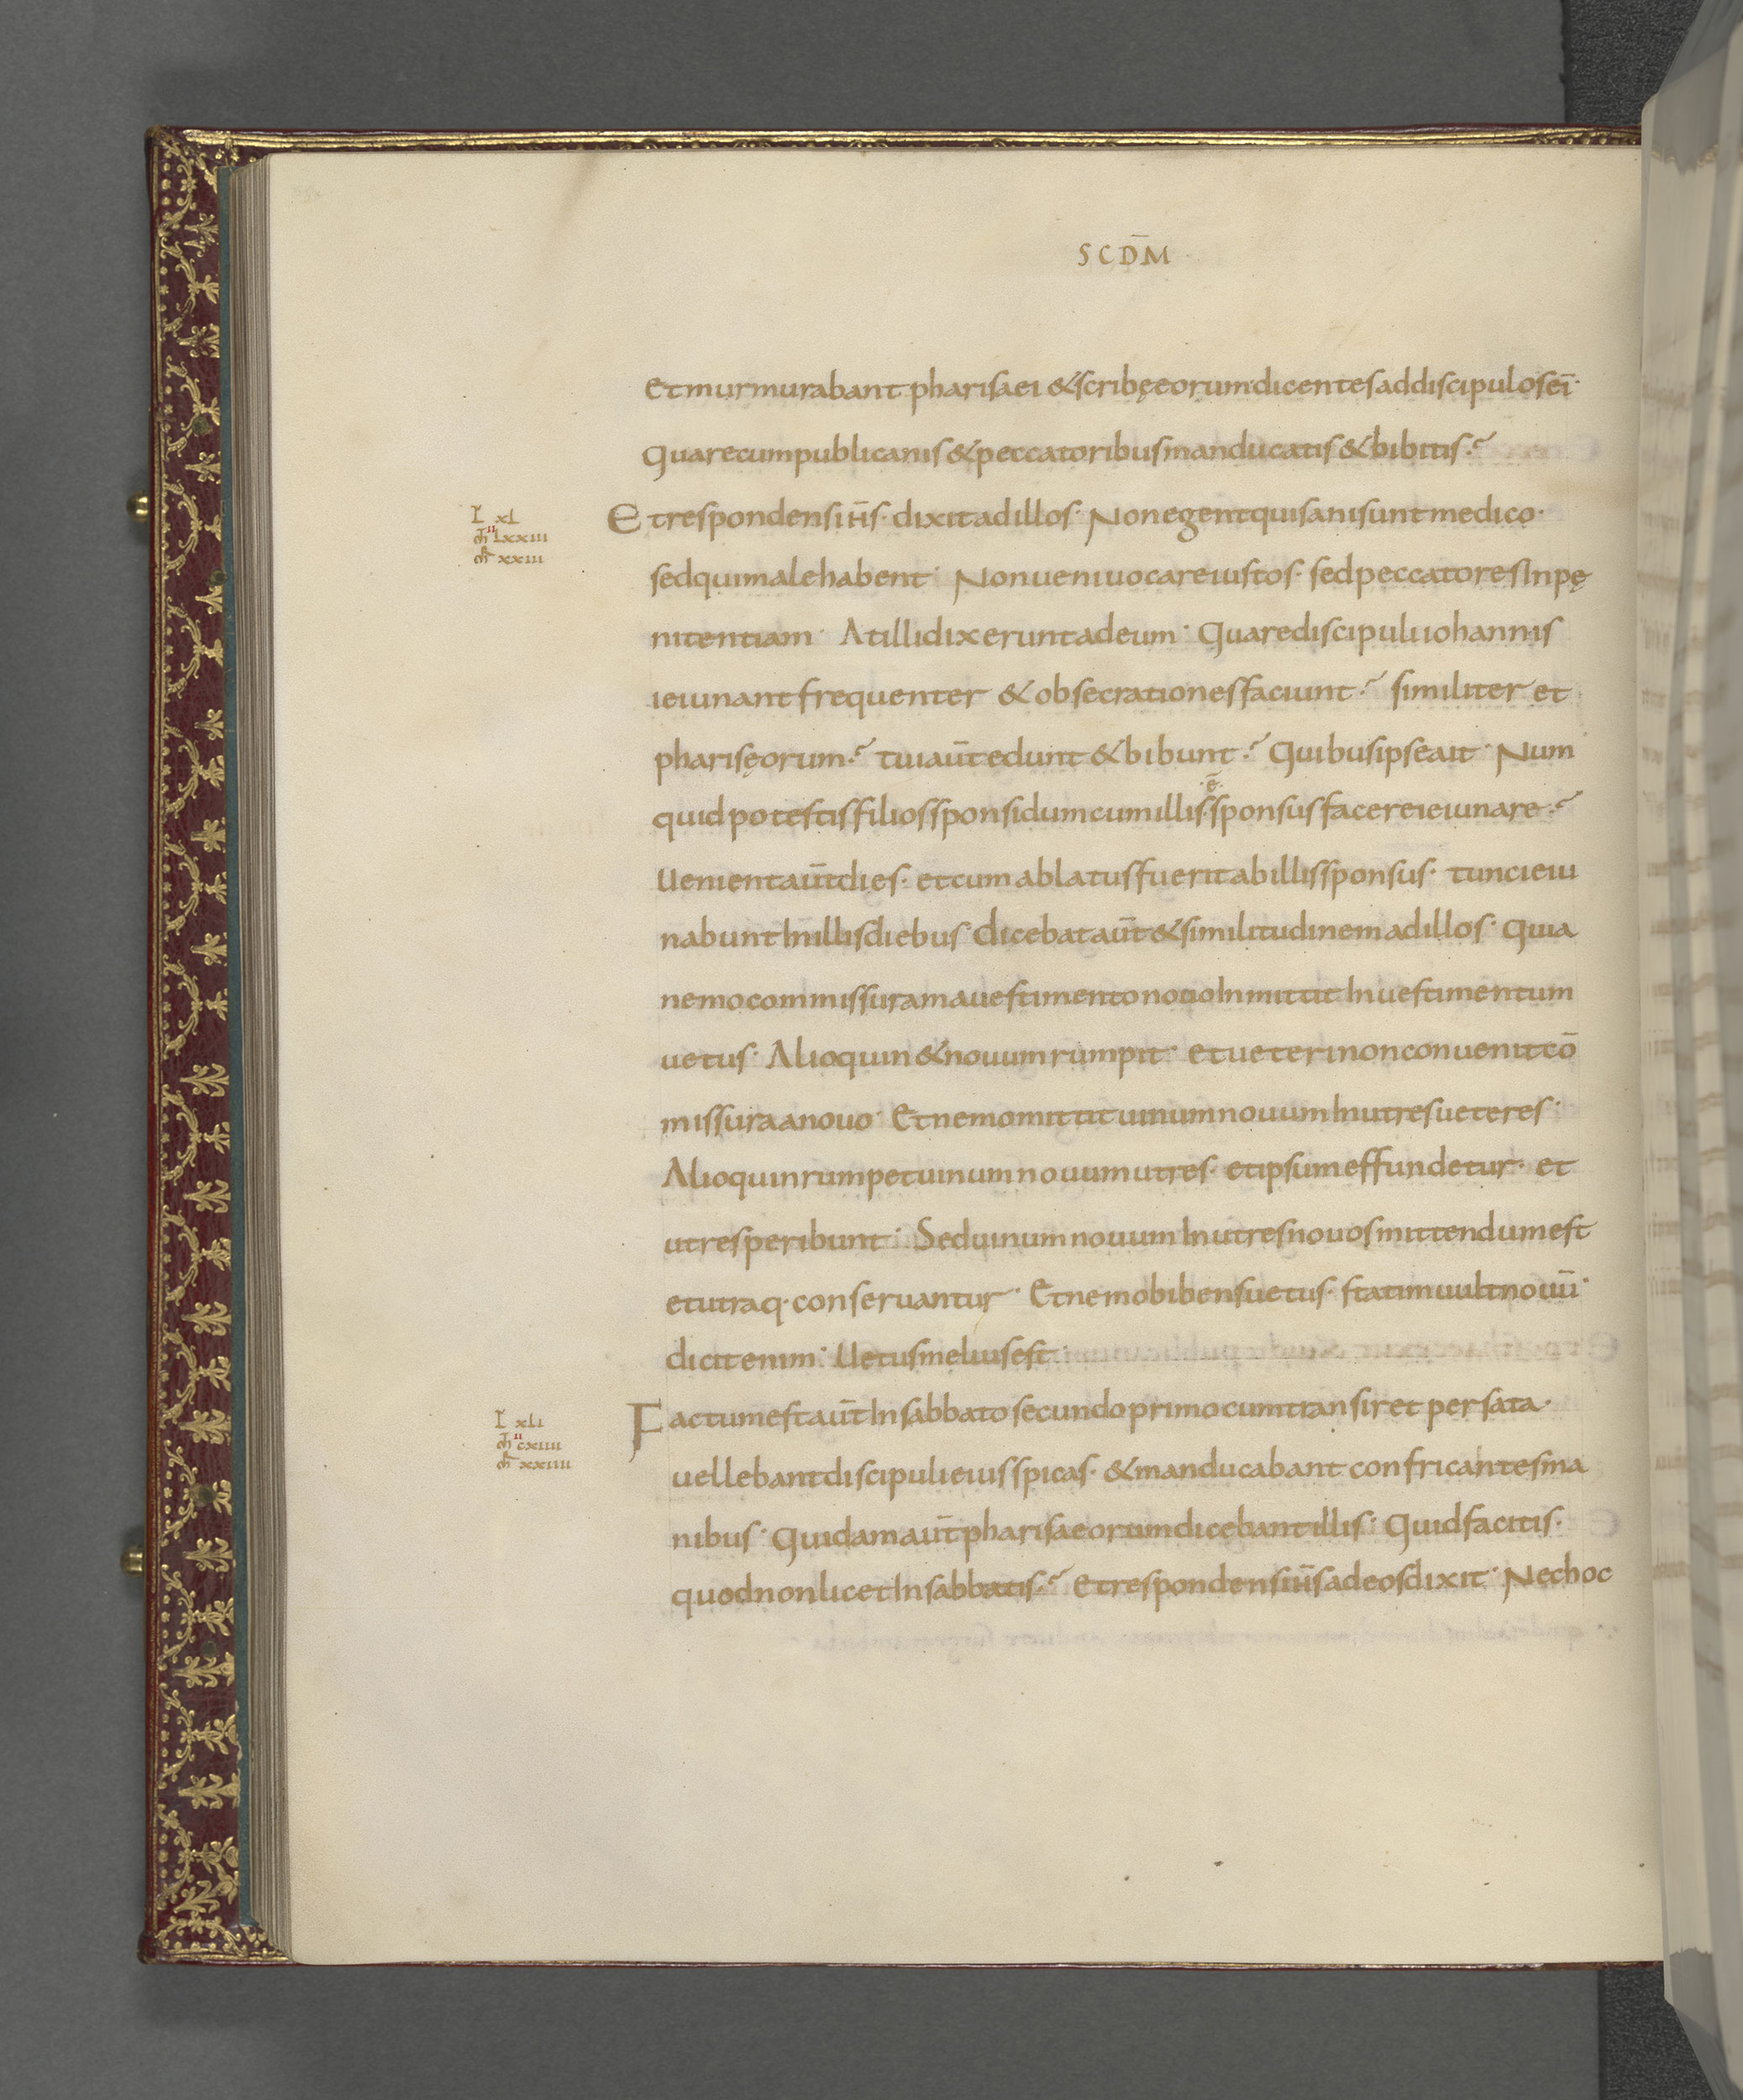 SCD̄M
Et murmurabant pharisaei & scribę eorum dicentes ad discipulos eī·
Quare cum publicanis & peccatoribus manducatis & bibitis·?
L xl
Et respondens ih̄s· dixit ad illos· Non egent qui sani sunt medico·
m̄ lxxiii
II
m̄r xxiii
sed qui male habent· Non ueni uocare iustos· sed peccatores In pę
nitentiam· At illi dixerunt ad eum· Quare discipuli iohannis
ieiunant frequenter & obsecrationes faciunt·? similiter et
phariseorum·? tui aūt edunt & bibunt·? Quibus ipse ait· Num
ē
quid potestis filios sponsi dum cum illis sponsus facere ieiunare·?
Uenient aūt dies· et cum ablatus fuerit ab illis sponsus· tunc ieiu
nabunt In illis diebus· dicebat aūt & similitudinem ad illos· Quia
nemo commissuram a uestimento nouo Inmittit In uestimentum
uetus· Alioquin & nouum rumpit· et ueteri non conuenit cō
missura a nouo· Et nemo mittit uinum nouum In utres ueteres·
Alioquin rumpet uinum nouum utres· et ipsum effundetur· et
utres peribunt· Sed uinum nouum In utres nouos mittendum est
et utraq· conseruantur· Et nemo bibens uetus· statim uult nouū·
dicit enim· Uetus melius est·
L xli
Factum est aūt In sabbato secundo primo cum transiret per sata·
II
m̄ cxiiii
m̄r xxiiii
uellebant discipuli eius spicas· & manducabant confricantes ma
nibus· Quidam aūt pharisaeorum dicebant illis· Quid facitis·
quod non licet In sabbatis·? Et respondens ih̄s ad eos dixit· Nec hoc